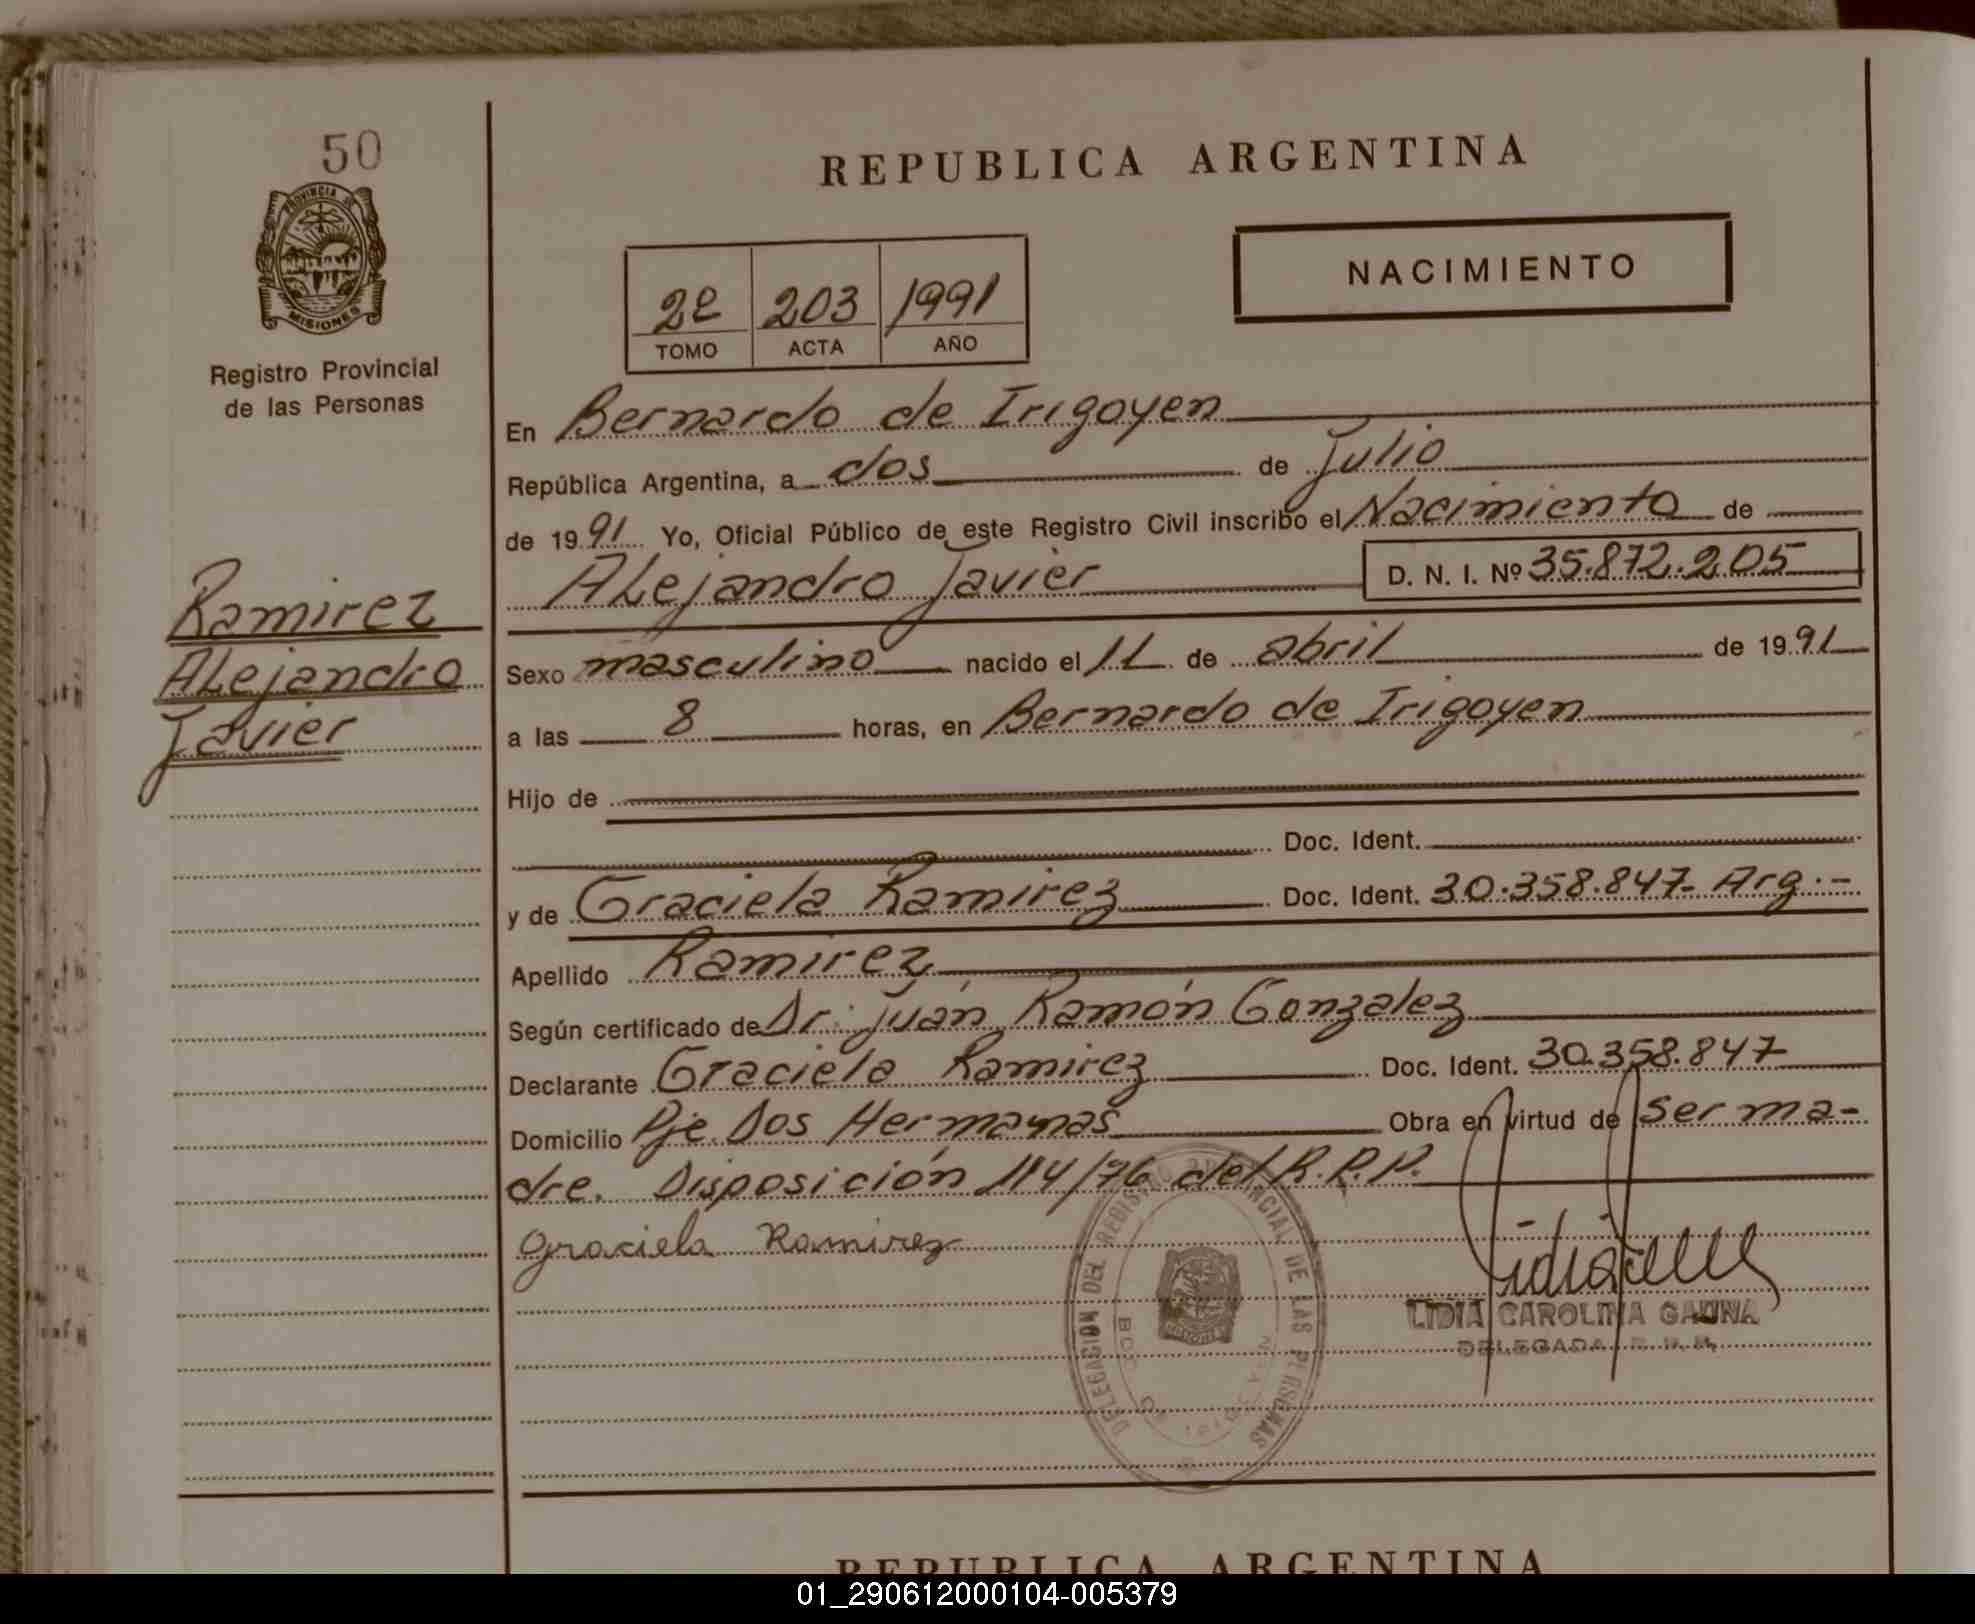 50
PROVINCIA DE
MISIONES
Registro Provincial
de las Personas
Ramirez
Alejandro
Javier
REPUBLICA ARGENTINA
2º 203 1991
TOMO ACTA AÑO
NACIMIENTO
En Bernardo de Irigoyen
República Argentina, a dos de Julio
de 1991 Yo, Oficial Público de este Registro Civil inscribo el Nacimiento de
Alejandro Javier D. N. I. Nº 35.872.205
Sexo masculino nacido el 11 de abril de 1991
a las 8 horas, en Bernardo de Irigoyen
Hijo de
Doc. Ident.
y de Graciela Ramirez Doc. Ident. 30.358.847- Arg.-
Apellido Ramirez
Según certificado de Dr: Juán Ramón Gonzalez
Declarante Graciela Ramirez Doc. Ident. 30.358.847
Domicilio Pje. Dos Hermanas Obra en virtud de ser ma-
dre. Disposición 114/76 del R.P.P.
Graciela Ramirez
DELEGACION DEL REGISTRO PROVINCIAL DE LAS PERSONAS
LIDIA CAROLINA GAUNA
DELEGADA
REPUBLICA ARGENTINA
01_290612000104-005379